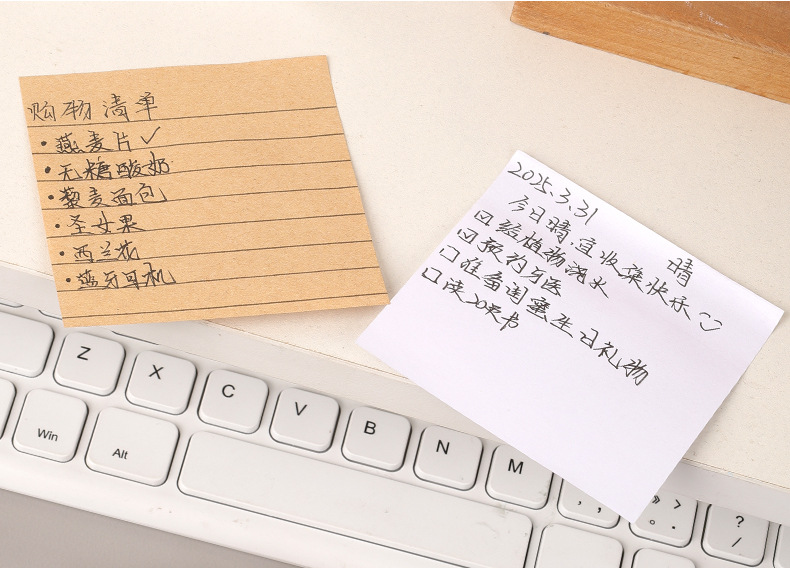 购物清单
• 燕麦片 ✓
• 无糖酸奶
• 藜麦面包
• 圣女果
• 西兰花
• 蓝牙耳机
2025.3.31
晴
今日晴,宜收集快乐
☑ 给植物浇水
☑ 预约牙医
☐ 准备闺蜜生日礼物
☐ 读20页书
Z X C V B N M , ; > 。. ? /
Win Alt